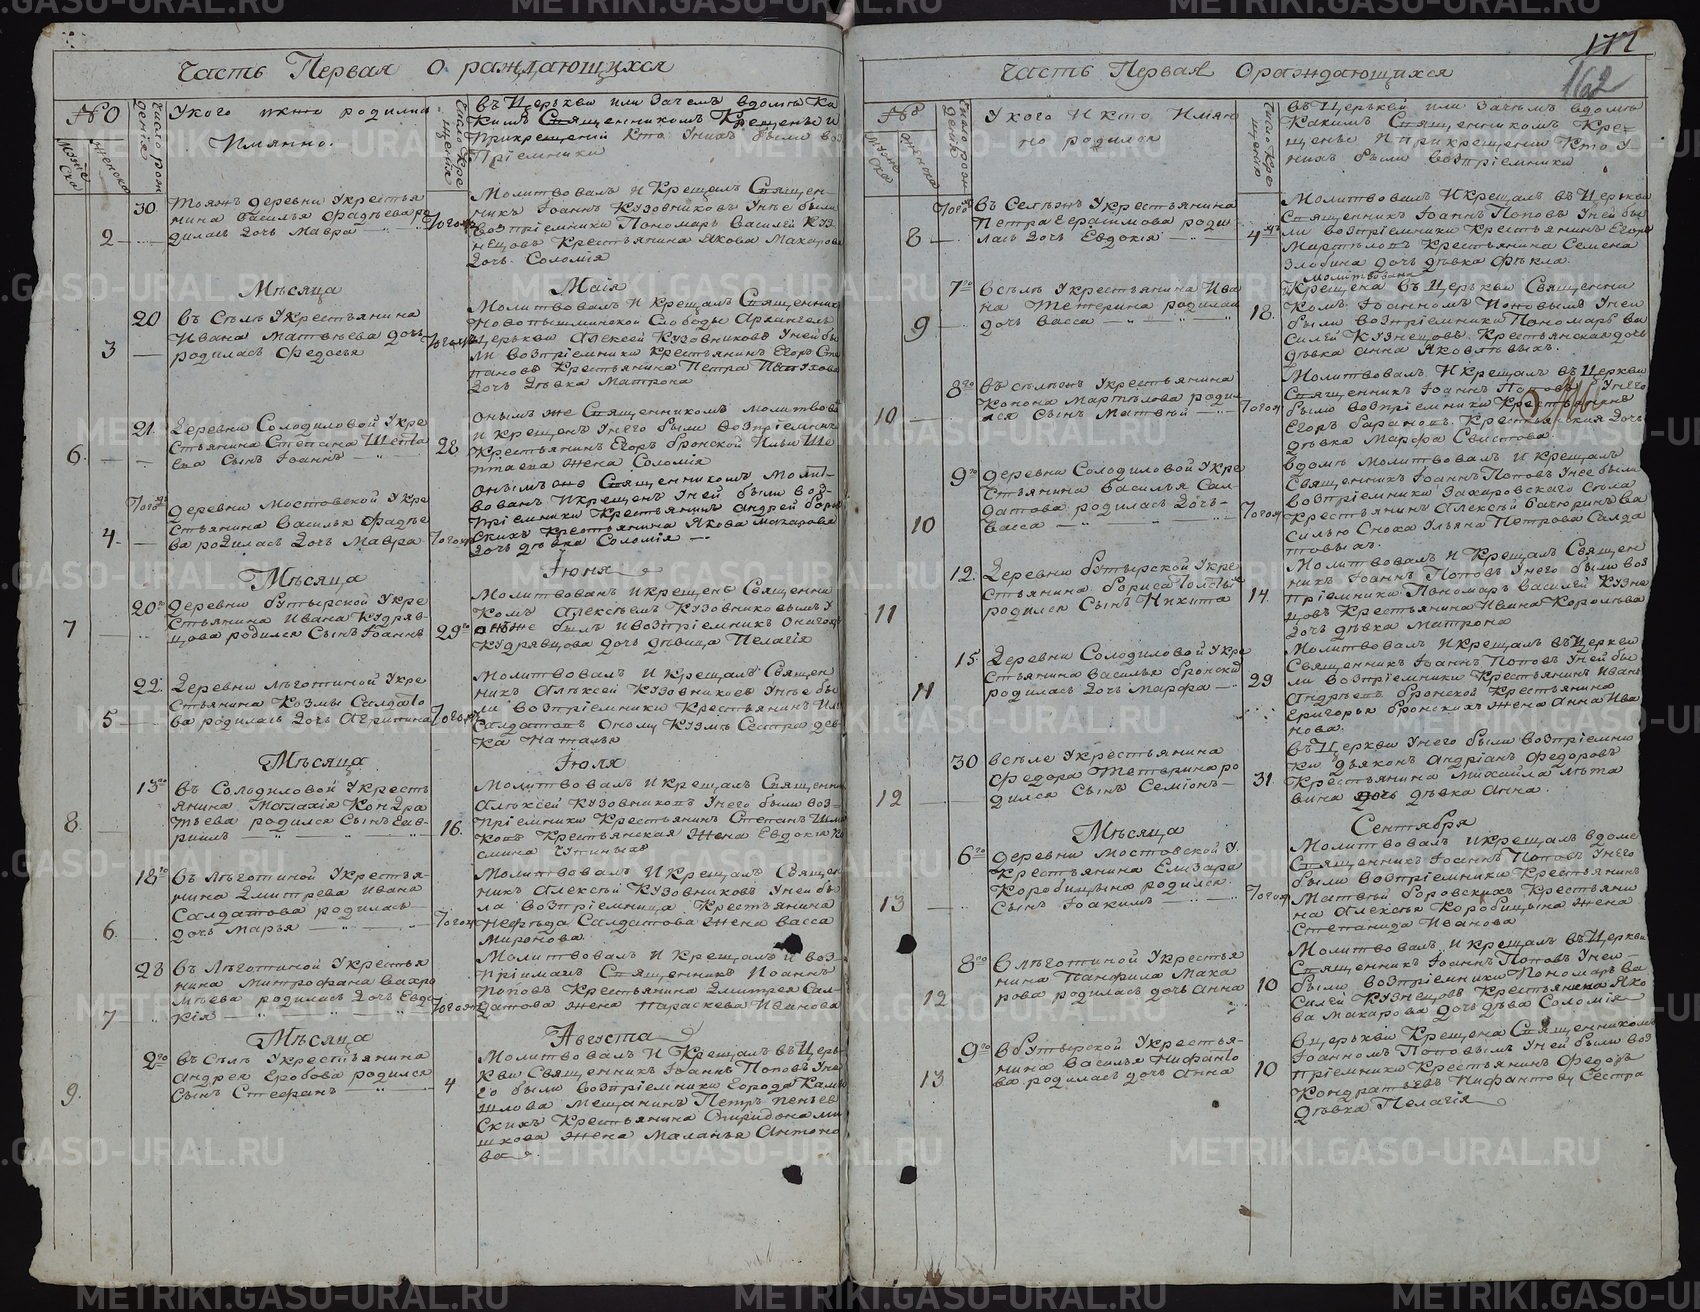 Часть Первая О раждающихся
№
Мужеска
Женска
Число рождения
У кого и кто родился
Имянно.
Число крещения
въ Церькви или зачемъ вдомъ Ка
кимъ Священникомъ Крещены и
прикрещении Кто Унихъ были воз
пріемники
2
30
Тояжъ деревни Укрестья
нина василья Фадѣева ро
дилась Дочь Мавра
Того
Молитвовалъ и Крещалъ Священ
никъ Іоаннъ Кузовниковъ Унѣе были
возпріемники Пономарь василей Куз
нецовъ Крестьянина Якова Макарова
Дочь Соломія
Мѣсяца Маія
3
20
въ Сѣлѣ Укрестьянина
Ивана Матвѣева дочь
родилась Федосья
Молитвовалъ и Крещалъ Священникъ
Новопышминской Слободы Архангель
Церькви Алексей Кузовниковъ Уней бы
ли возпріемники крестьянинъ Егоръ Сте
пановъ Крестьянина Петра Пятухова
Дочь Дѣвка Матрона
6
21
Деревни Солодиловой Укре
стьянина Степана Шепта
ева Сынъ Іоаннъ
28
Онымъ же Священникомъ молитвова
и крещенъ Унего были возпріемники
Крестьянинъ Егоръ бронской Ильи Ше
птаева жена Соломія
4
деревни Мостовской Укре
стьянина василья Фадѣе
ва родилась Дочь Мавра
Онымъ же Священникомъ Молит
вованъ Икрещенъ Уней были воз
пріемники Крестьянинъ Андрей Боров
скихъ Крестьянина Якова Макарова
Дочь дѣвка Соломія
Мѣсяца Іюня
7
20го
Деревни бутырской Укре
стьянина Ивана Кудряв
цова родился Сынъ Іоаннъ
29го
Молитвованъ Икрещенъ Священни
комъ Алексѣемъ Кузовниковымъ У
онѣже былъ ивозпріемникъ Онагожъ
Кудрявцова дочь дѣвица Пелагія
5
22
Деревни Лѣготиной Укре
стьянина Козмы Салдато
ва родилась Дочь Агрипина
Молитвовалъ И Крещалъ Священ
никъ Алѣксей Кузовниковъ Унѣе бы
ли возпріемники Крестьянинъ
Салдатовъ Оному Кузмѣ Сестра дев
ка Наталья
Мѣсяца Іюля
8
13го
въ Солодиловой Укресть
янина Малахія Кондра
тьева родился Сынъ Гав
риилъ
16
Молитвовалъ И Крещалъ Священни
Алѣксей Кузовниковъ Унего были воз
пріемники Крестьянинъ Степанъ
Крестьянская Жена Евдокія
6
18го
въ Лѣготиной Укрестья
нина Дмитрева Ивана
Салдатова родилась
дочь Марья
Молитвовалъ И Крещалъ Священ
никъ Алексѣй Кузовниковъ Уней бы
ла возпріемница Крестьянина
Нефѣда Салдатова Жена васса
Миронова
7
23
въ Лѣготиной Укрестья
нина Митрофана вахро
мѣева родилась Дочь Евдо
кія
Молитвовалъ И Крещалъ И воз
пріималъ Священникъ Иоаннъ
Поповъ Крестьянина Дмитрея Сал
датова жена параскева Иванова
Мѣсяца Августа
9
2го
въ Сѣлѣ Укрестьянина
Андрея Еробова родился
Сынъ Стефанъ
4
Молитвовалъ И Крещалъ въ Церь
кви Священникъ Іоаннъ Поповъ Уне
го были возпріемники Города Камы
шлова мещанинъ Петръ пеньев
скихъ Крестьянина Спиридона ми
шкова Жена Маланья Антоно
ва
177
162
Часть Первая Ораждающихся
№
Мужеска
Женска
Число рождения
У кого И кто Имян
но родился
Число крещения
въ Церькви или Зачѣмъ вдомъ
Какимъ Священникомъ Кре
щены И прикрещении Кто У
нихъ были возтріемники
8
въ Селѣ Укрестьянина
Петра Герасимова роди
лась Дочь Евдокія
4
Молитвовалъ Икрещалъ въ Церькви
Священникъ Іоаннъ Поповъ Уней бы
ли возпріемники Крестьянинъ Егоръ
Мартѣловъ Крестьянина Семена
Злобина дочь дѣвка Ѳѣкла.
9
7го
всѣлѣ Укрестьянина Ива
на Тетерина родилась
дочь васса
18
Молитвована
Крещена въ Церькви Священни
комъ Іоанномъ Поповымъ Уней
были возпріемники Пономарь ва
силей Кузнецовъ Крестьянская дочь
дѣвка Анна Яковлѣвыхъ.
10
8го
въ сѣлѣ Укрестьянина
Конона Мартѣлова роди
лся Сынъ Матвѣй
Молитвовалъ Икрещалъ въ Церькви
Священникъ Іоаннъ Поповъ Унего
были возпріемники Крестьянинъ
Егоръ барановъ Крестьянская Дочь
дѣвка Марфа Свистова
10
9го
Деревни Солодиловой Укре
стьянина василья Сал
датова родилась Дочь
васса
вдомѣ Молитвовалъ И Крещалъ
Священникъ Іоаннъ Поповъ Унее были
возпріемники Захаровскаго Села
Крестьянинъ Алексѣй бачюринъ ва
силью Сноха Ульяна Петрова Салда
товыхъ.
11
12.
Деревни бутырской Укре
стьянина бориса
родился Сынъ Никита
14
Молитвовалъ И Крещалъ Священ
никъ Іоаннъ Поповъ Унего были воз
пріемники Пономарь василей Кузне
цовъ Крестьянина Ивана Королѣва
Дочь дѣвка Матрона
11
15
Деревни Солодиловой Укре
стьянина василья бронских
родилась Дочь Марфа
29
Молитвовалъ Икрещалъ въ Церкви
Священникъ Іоаннъ Поповъ Уней бы
ли возпріемники Крестьянинъ Иванъ
Андрѣевъ бронской Крестьянина
Григорья бронскихъ Жена Анна Ива
нова.
12
30
всѣлѣ Укрестьянина
Федора Тетерина ро
дился Сынъ Семіонъ
31
въ Церкви Унего были возпріемни
ки дьяконъ Андріанъ Федоровъ
Крестьянина Михайла Лѣта
вина дочь дѣвка Анна.
Мѣсяца Сентября
13
6го
деревни Мостовской У
крестьянина Елизара
Коробицына родился
Сынъ Іоакимъ
Молитвовалъ Икрещалъ вдоме
Священникъ Іоаннъ Поповъ Унего
были возпріемники Крестьянинъ
Матвѣй боровскихъ Крестьяни
на Алексѣя Коробицына жена
Степанида Иванова
12
8го
влѣготиной Укрестья
нина Панфила Мака
рова родилась дочь Анна
10
Молитвовалъ и крещалъ въ Церкви
Священникъ Іоаннъ Поповъ Уней
были возпріемники Пономарь ва
силей Кузнецовъ Крестьянина Яко
ва Макарова дочь дѣвка Соломія
13
9го
вбутырской Укрестья
нина василья Нифанто
ва родилась дочь Анна
10
вцерькви Крещена Священникомъ
Іоанномъ Поповымъ Уней были воз
пріемники Крестьянинъ Федоръ
Кондратьевъ Нифантову Сестра
дѣвка Пелагія